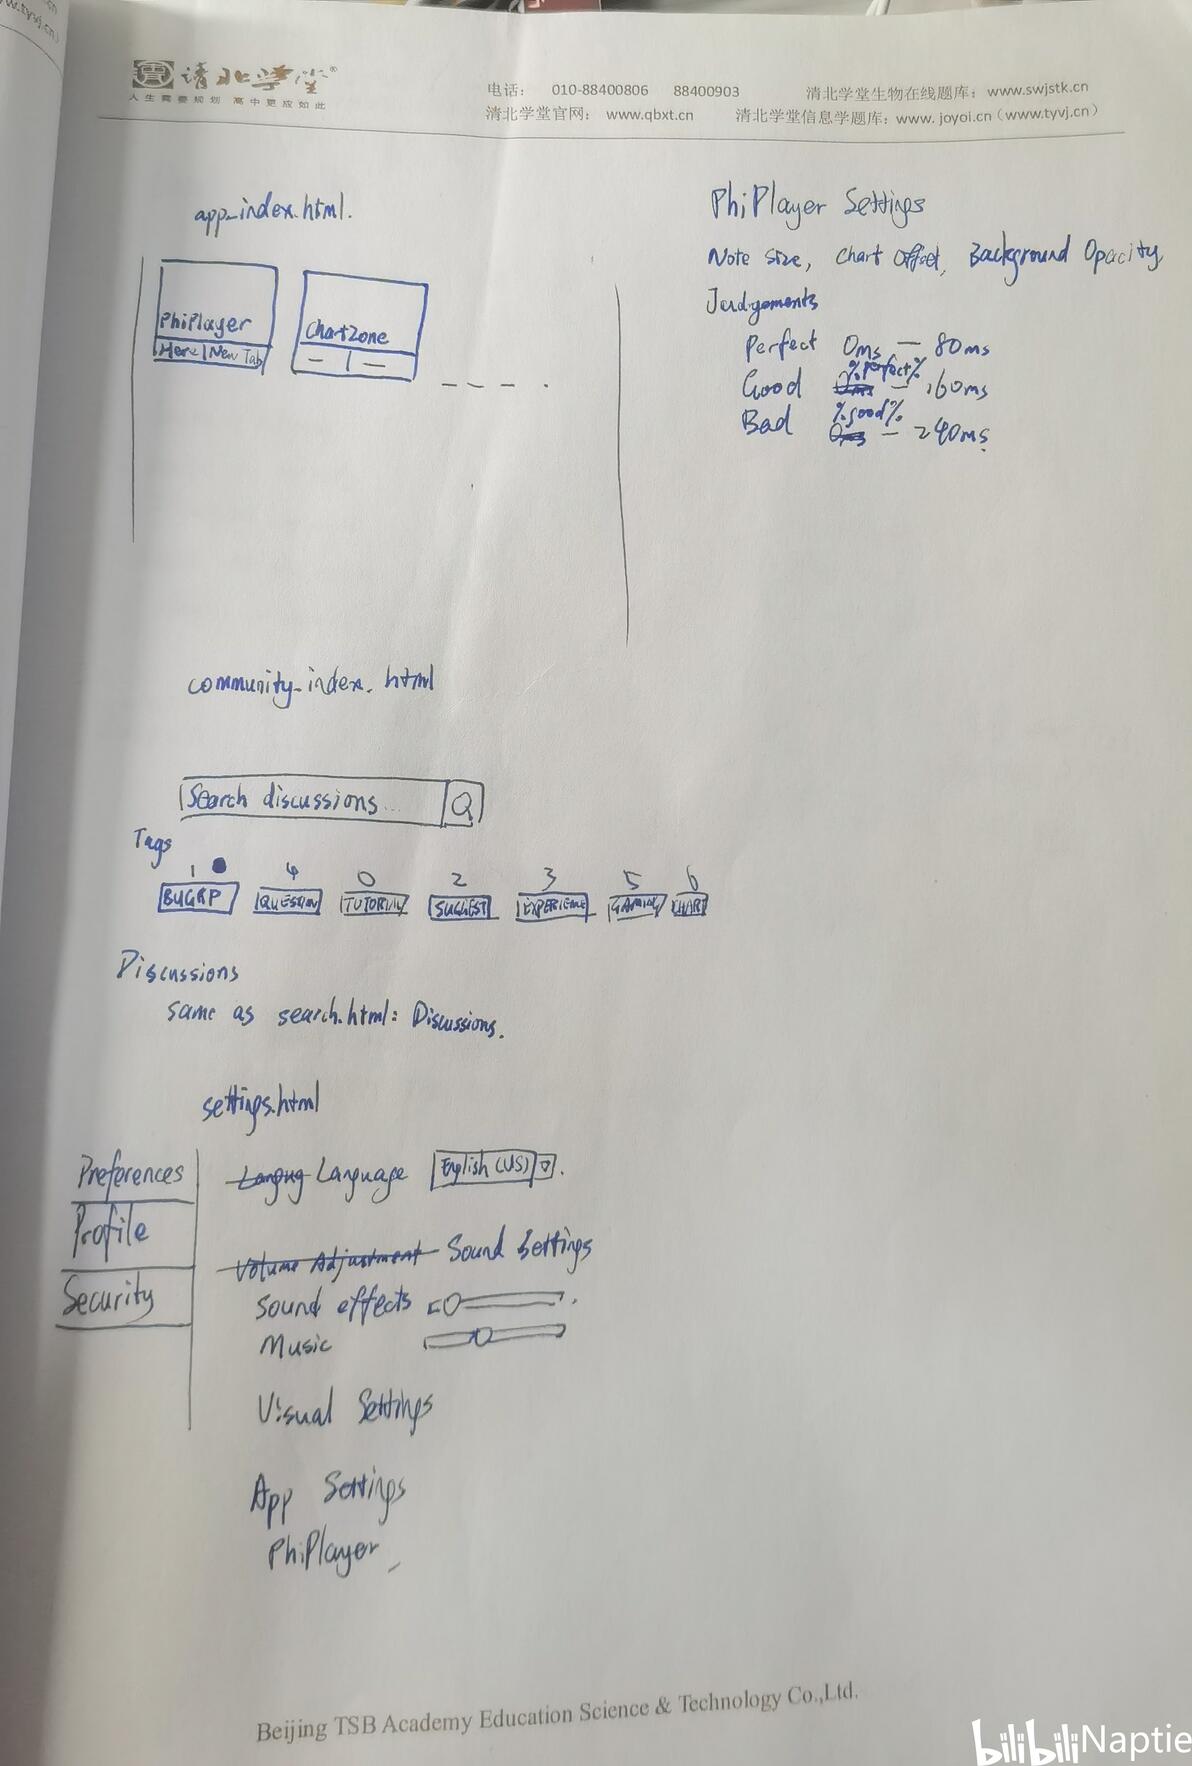 清北学堂®
人生需要规划 高中更应如此
电话： 010-88400806 88400903 清北学堂生物在线题库：www.swjstk.cn
清北学堂官网： www.qbxt.cn 清北学堂信息学题库：www. joyoi.cn（www.tyvj.cn）
app_index.html.
PhiPlayer
Here | New Tab
ChartZone
PhiPlayer Settings
Note size, Chart Offset, Background Opacity
Judgements
Perfect 0ms — 80ms
Good %perfect% — 160ms
Bad %good% — 240ms
community_index.html
Search discussions...
Tags
1 4 0 2 3 5 6
BUGRP QUESTION TUTORIAL SUGGEST EXPERIENCE GAMING CHART
Discussions
same as search.html: Discussions.
settings.html
Preferences
Profile
Security
Langug Language English (US)
Volume Adjustment Sound Settings
Sound effects
Music
Visual Settings
App Settings
PhiPlayer
Beijing TSB Academy Education Science & Technology Co.,Ltd.
bilibili Naptie